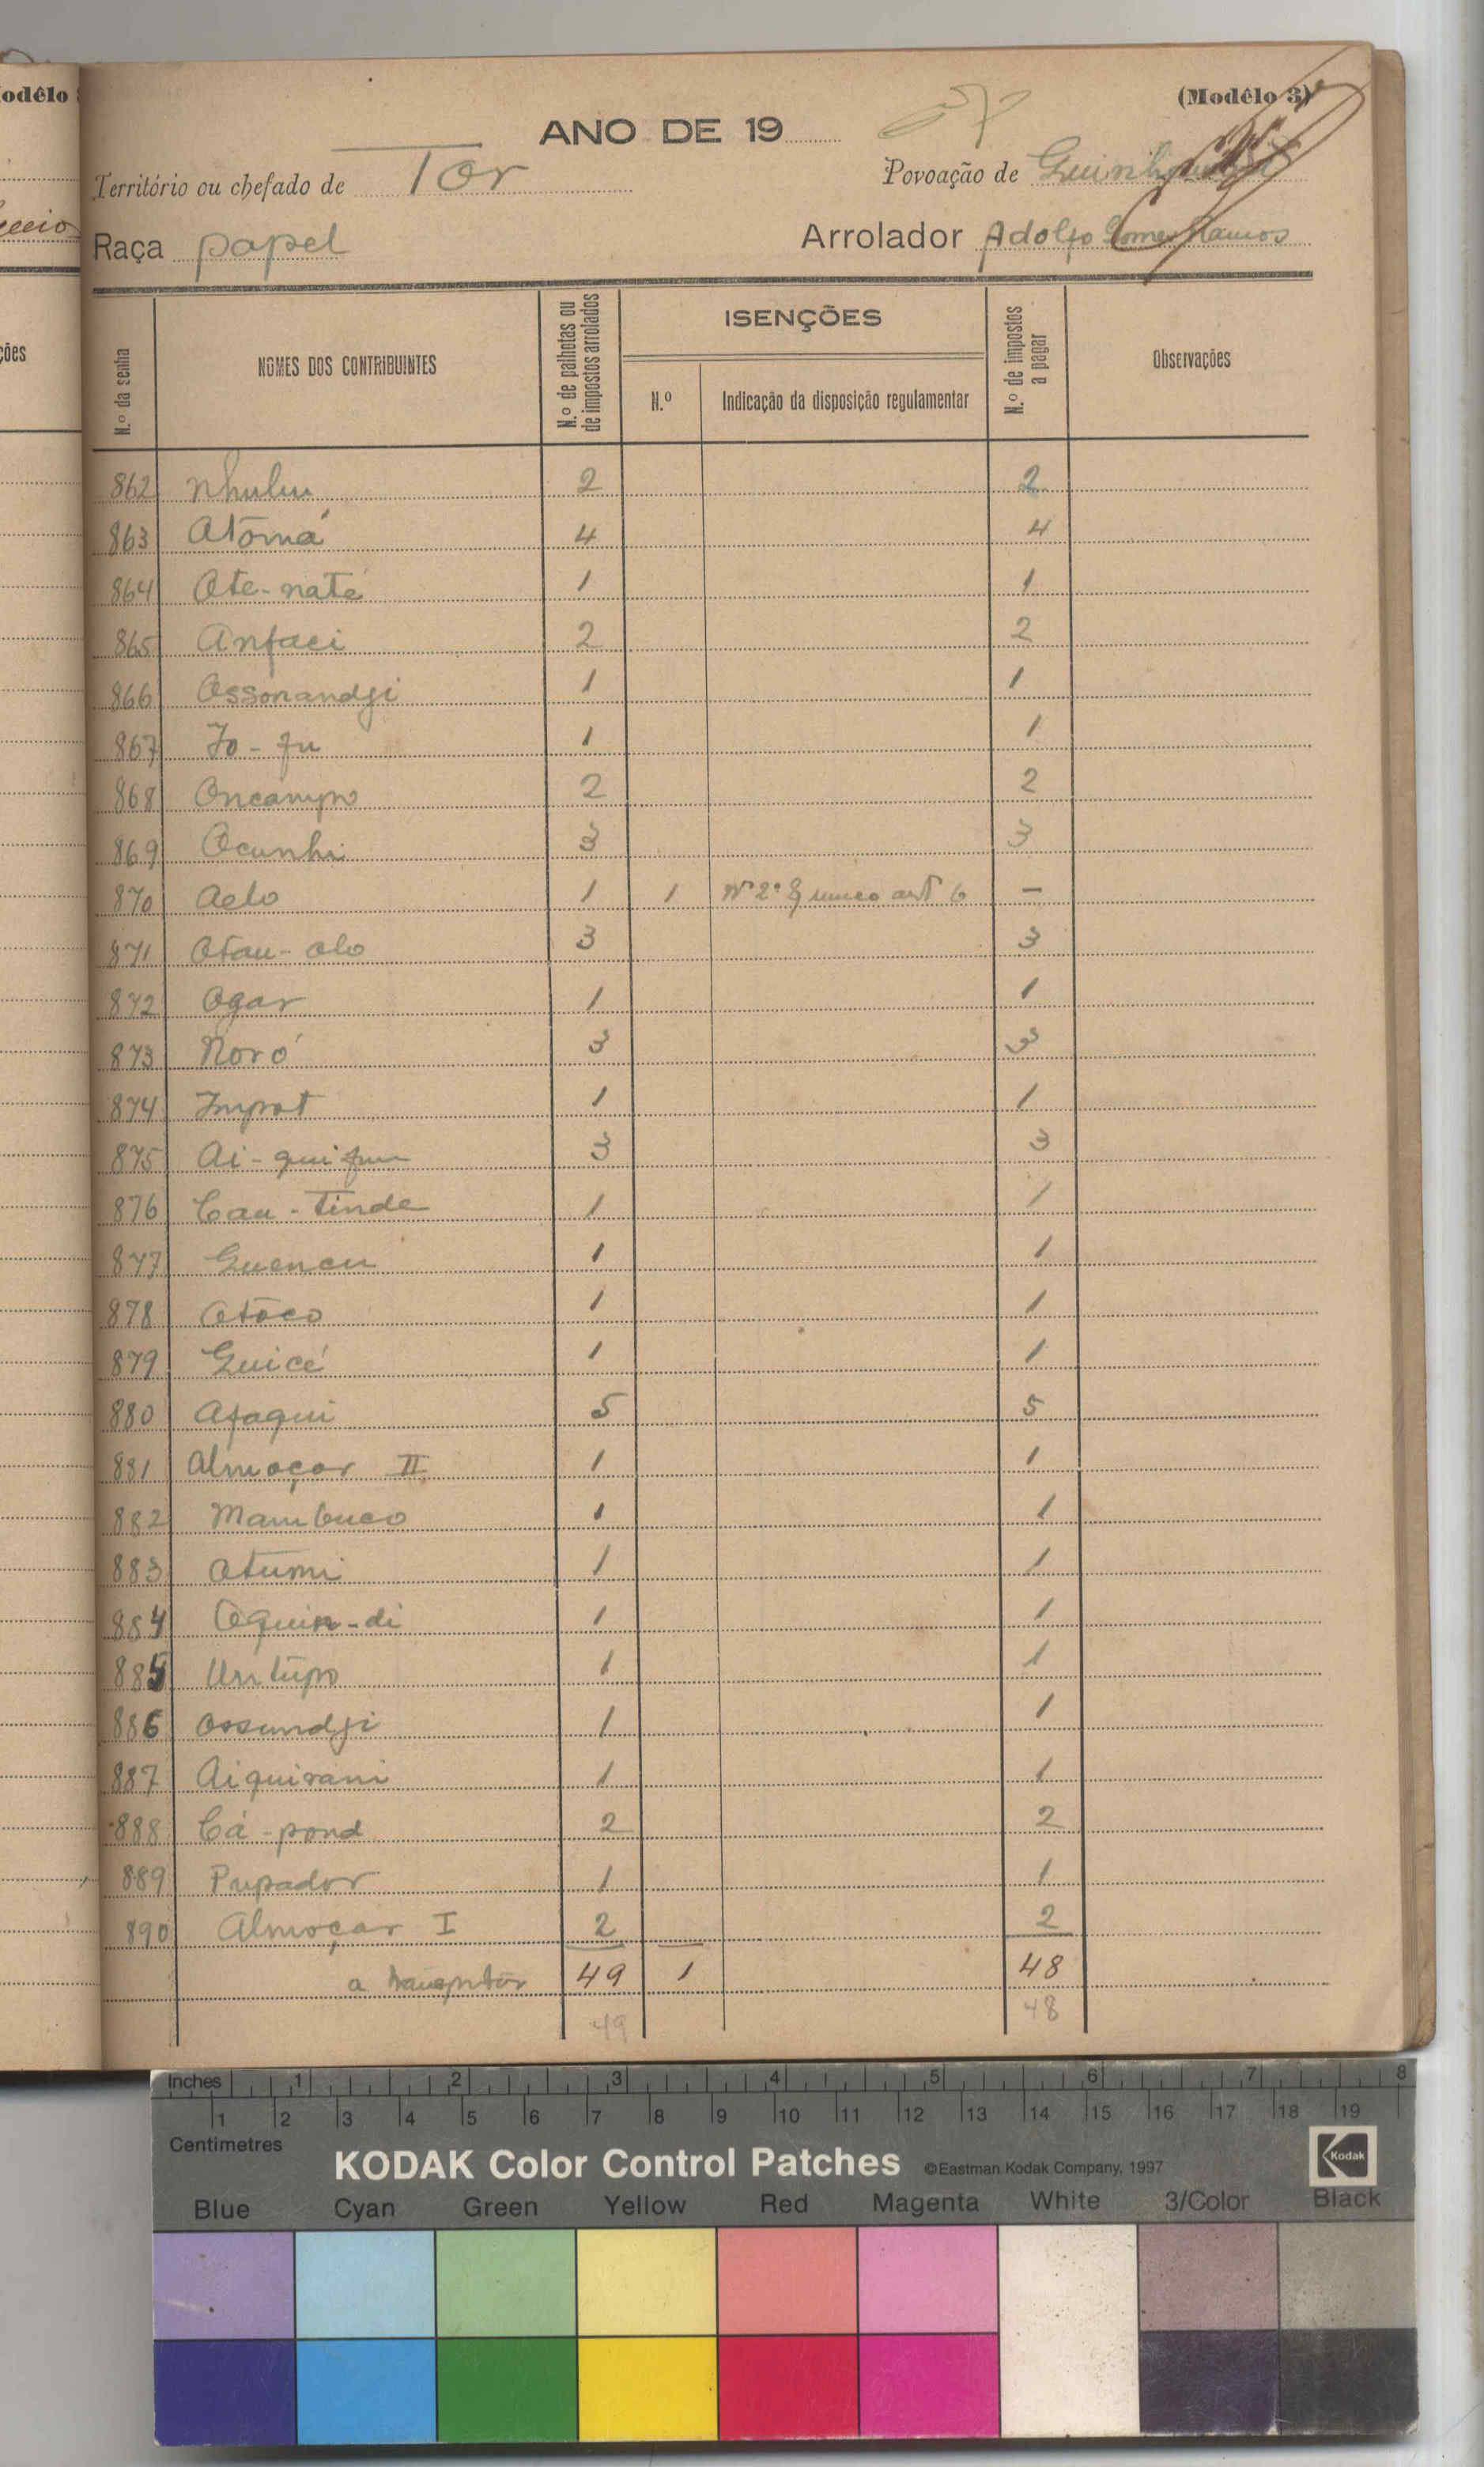 odêlo
(Modêlo 3)
57
ANO DE 19
Território ou chefado de Tor
Povoação de
Raça papel
Arrolador Adolfo Gomes Ramos
ções
N.º da senha
NOMES DOS CONTRIBUINTES
N.º de palhotas ou de impostos arrolados
ISENÇÕES
N.º
Indicação da disposição regulamentar
N.º de impostos a pagar
Observações
862 Nhulun 2 2
863 Atōmá 4 4
864 Ote-naté 1 1
865 Anfaci 2 2
866 Ossonandji 1 1
867 Jo-fu 1 1
868 Oncampo 2 2
869 Ocunhi 3 3
870 Aelo 1 1 Nº 2º § unico artº 6 -
871 Ofau-olo 3 3
872 Ogar 1 1
873 Noró 3 3
874 Impot 1 1
875 Ai-quifum 3 3
876 Cau-Tinde 1 1
877 Guencu 1 1
878 Otōco 1 1
879 Guicé 1 1
880 Afaqui 5 5
881 Almoçar II 1 1
882 Mambuco 1 1
883 Otumi 1 1
884 Oquin-di 1 1
885 Untupo 1 1
886 Ossundji 1 1
887 Aiquirani 1 1
888 Cá-pond 2 2
889 Pupador 1 1
890 Almoçar I 2 2
a transportar 49 1 48
49 48
Inches 1 2 3 4 5 6 7 8
1 2 3 4 5 6 7 8 9 10 11 12 13 14 15 16 17 18 19
Centimetres
KODAK Color Control Patches ©Eastman Kodak Company, 1997 Kodak
Blue Cyan Green Yellow Red Magenta White 3/Color Black